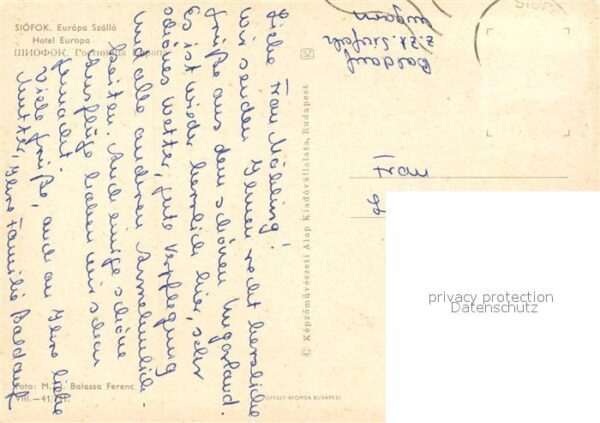 SIÓFOK. Európa Szálló
Hotel Europa
ШИОФОК. Гостиница Европа
Liebe Frau Mölling!
wir senden Ihnen recht herzliche
Grüße aus dem schönen Ungarland.
Es ist wieder herrlich hier, sehr
schönes Wetter, gute Verpflegung
und alle anderen Annehmlich-
keiten. Auch einige schöne
Ausflüge haben wir schon
gemacht.
Viele Grüße, auch an Ihre liebe
Mutter, Ihre Familie Baldauf
Baldauf
z. Zt. Siofok
Ungarn
Frau
© Képzőművészeti Alap Kiadóvállalata, Budapest
privacy protection
Datenschutz
Foto: M. Balassa Ferenc
VIII.—41/
OFFSET-NYOMDA, BUDAPEST